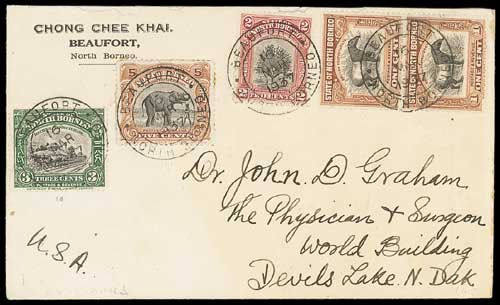 CHONG CHEE KHAI.
BEAUFORT,
North Borneo.
BEAUFORT
NORTH BORNEO
5 5
FIVE CENTS
2 2
TWO CENTS
STATE OF NORTH BORNEO
1 ONE CENT 1
STATE OF NORTH BORNEO
ONE CENT
NORTH BORNEO
3 THREE CENTS 3
Dr. John. D. Graham
The Physician & Surgeon
World Building
Devils Lake. N. Dak
U.S.A.